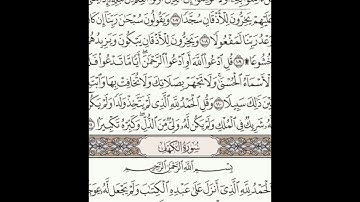 عَلَيْهِمْ يَخِرُّونَ لِلْأَذْقَانِ سُجَّدًا ١٠٧ وَيَقُولُونَ سُبْحَٰنَ رَبِّنَآ إِن كَانَ
وَعْدُ رَبِّنَا لَمَفْعُولًا ١٠٨ وَيَخِرُّونَ لِلْأَذْقَانِ يَبْكُونَ وَيَزِيدُهُمْ
خُشُوعًا ۩ ١٠٩ قُلِ ٱدْعُوا۟ ٱللَّهَ أَوِ ٱدْعُوا۟ ٱلرَّحْمَٰنَ ۖ أَيًّا مَّا تَدْعُوا۟ فَلَهُ
ٱلْأَسْمَآءُ ٱلْحُسْنَىٰ ۚ وَلَا تَجْهَرْ بِصَلَاتِكَ وَلَا تُخَافِتْ بِهَا وَٱبْتَغِ
بَيْنَ ذَٰلِكَ سَبِيلًا ١١٠ وَقُلِ ٱلْحَمْدُ لِلَّهِ ٱلَّذِى لَمْ يَتَّخِذْ وَلَدًا وَلَمْ يَكُن
لَّهُۥ شَرِيكٌ فِى ٱلْمُلْكِ وَلَمْ يَكُن لَّهُۥ وَلِىٌّ مِّنَ ٱلذُّلِّ ۖ وَكَبِّرْهُ تَكْبِيرًۢا
سُورَةُ الكَهْفِ
بِسْمِ ٱللَّهِ ٱلرَّحْمَٰنِ ٱلرَّحِيمِ
ٱلْحَمْدُ لِلَّهِ ٱلَّذِىٓ أَنزَلَ عَلَىٰ عَبْدِهِ ٱلْكِتَٰبَ وَلَمْ يَجْعَل لَّهُۥ عِوَجَا